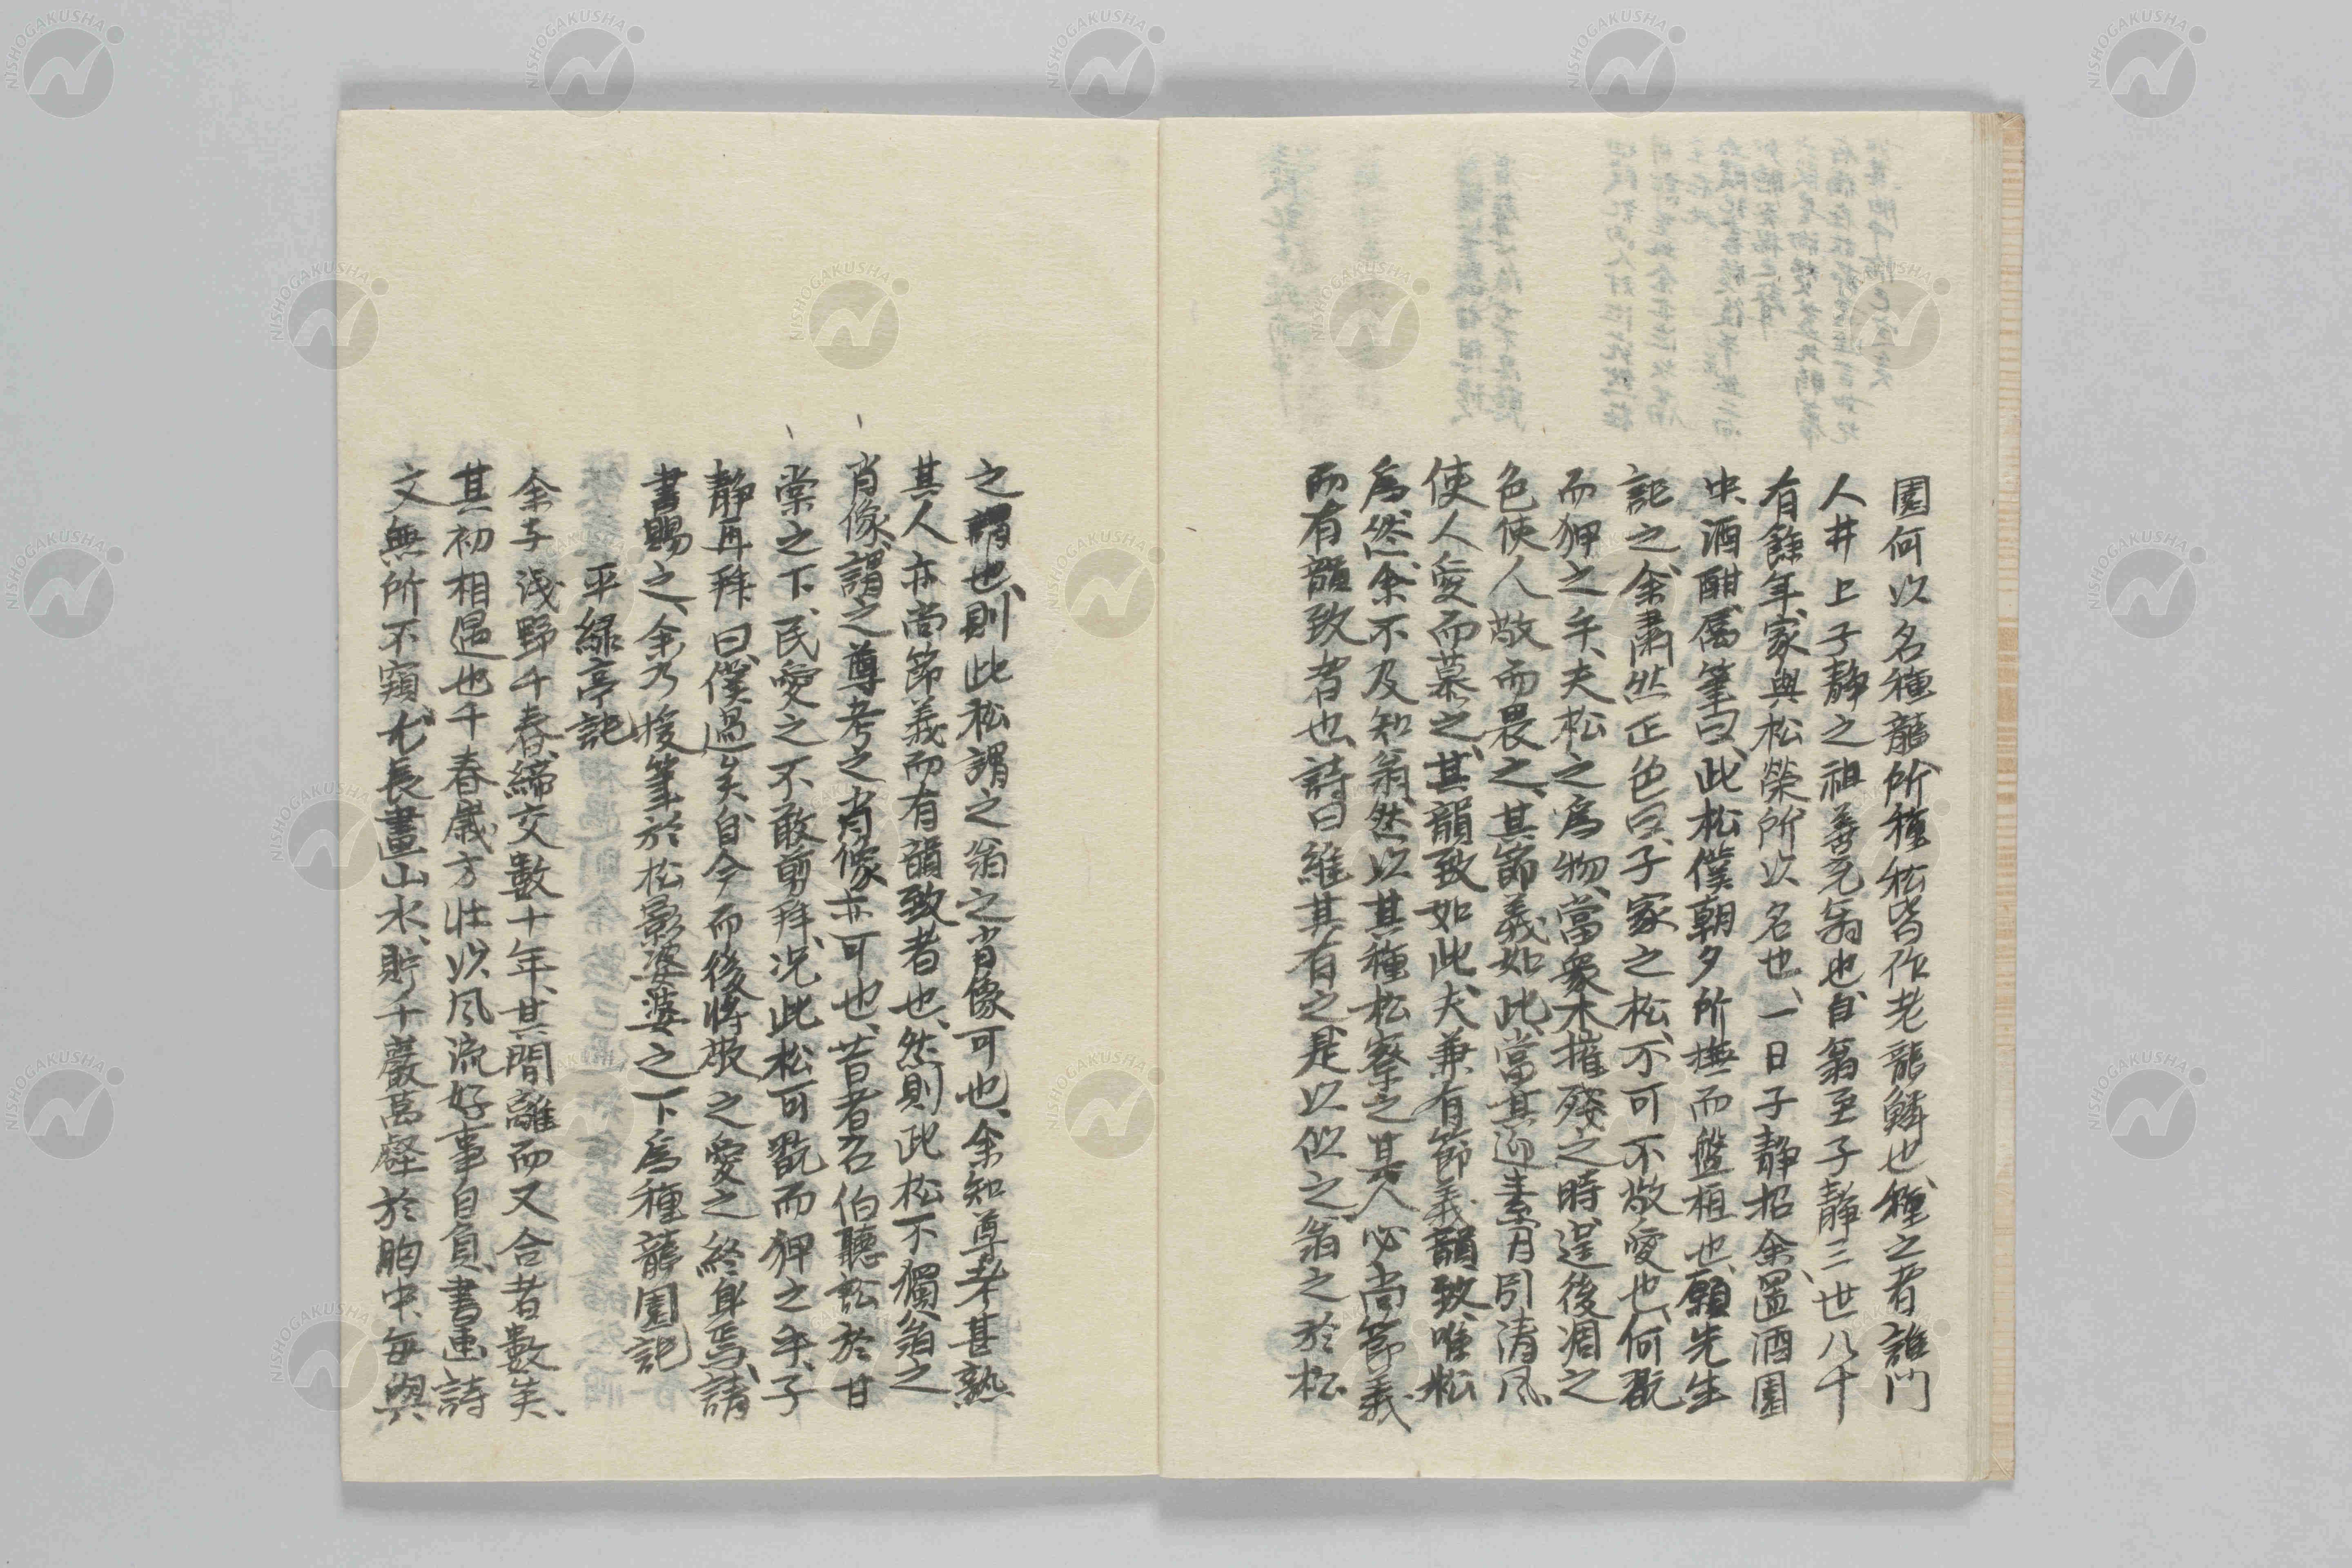 園何以名種龍、所種松皆作老龍鱗也、種之者誰門
人井上子靜之祖善元翁也、自翁至子靜三世八十
有餘年、家與松榮所以名也、一日子靜招余、置酒園
中、酒酣屬筆曰、此松僕朝夕所撫而盤桓也、願先生
記之、余肅然正色曰、子家之松、不可不敬愛也、何翫
而狎之乎、夫松之爲物、當衆木摧殘之時、逞後凋之
色使人敬而畏之、其節義如此、當其迎素月引清風、
使人愛而慕之、其韻致如此、夫兼有節義韻致、唯松
爲然、余不及知翁、然以其種松察之其人必尚節義
而有韻致者也、詩曰維其有之是以似之翁之於松
之謂也、則此松謂之翁之肖像可也、余知尊考甚熟
其人亦尚節義而有韻致者也、然則此松不獨翁之
肖像、謂之尊考之肖像亦可也、昔者召伯聽訟於甘
棠之下、民愛之不敢剪拜、況此松可翫而狎之乎、子
靜再拜曰、僕過矣、自今而後將敬之愛之終身焉、請
書賜之、余乃援筆於松影婆娑之下爲種龍園記
平綠亭記
余与浅野千春締交數十年、其間離而又合者數矣、
其初相遇也千春歲方壯以风流好事自負、書画詩
文無所不窺、尤長畫山水、貯千巖萬壑於胸中、每與